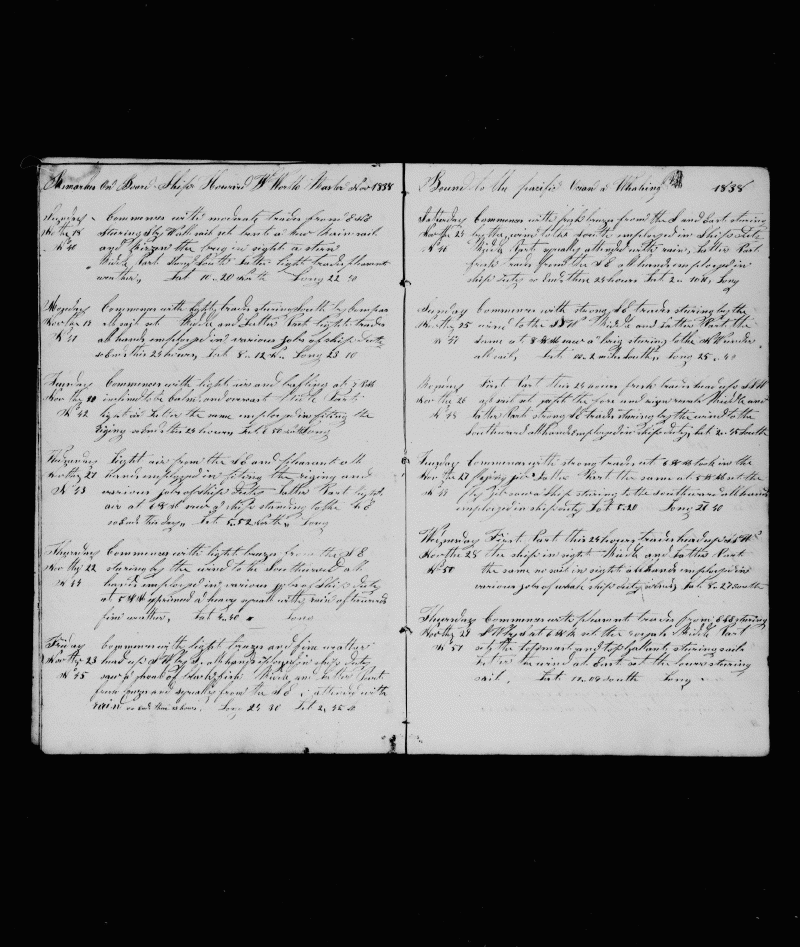 Remarks On Board Ship Howard Wm Worth Master Nov 1838
Sunday Commences with moderate trades from ENE
Nov the 18 steering S by W all sail set
No 40 and seen the brig in sight a stern
Middle Part Latter light trades pleasant
weather, Lat 10..20 North Long 22 30
Monday Commences with light trades steering South by Compas
Nov the 19 all sail set Middle and Latter Part light trades
No 41 all hands employed in various jobs of ship duty
so ends this 24 hours, Lat 8..12 N Long 23 10
Tuesday Commences with light airs and baffling at
Nov the 20 inclined to be calm and overcast Middle Part
No 42 light air Latter the same employed in fiting the
riging so ends this 24 hours Lat Long
Wednesday Light air from the SE and pleasant all
Nov the 21 hands employed in fiting the riging and
No 43 various jobs of ships duty Latter Part light
air at 6 saw a ship standing to the NE
so Ends this day Lat 5..52 North Long
Thursday Commences with light breeze from the SE
Nov the 22 steering by the wind to the Southward all
No 44 hands employed in various jobs of Ship duty
at 5 a heavy squall with rain
fine weather, Lat 4..40 N Long
Friday Commences with light breeze and fine weather
Nov the 23 head up SW by S, all hands employed in ship duty
No 45 saw a shoal of Blackfish Middle and Latter Part
fresh breeze and squally from the SE attened with
rain so Ends this 24 hours. Long 24 30 Lat 2..45 N
Bound to the pacific Ocean a Whaling 1838
Saturday Commences with fresh breeze from the S and East steering
Nov the 24 by the wind to the South employed in Ship duty
No 46 Middle Part squally attened with rain, Latter Part
fresh trades from the SE all hands employed in
ship duty so Ends this 24 hours Lat Long
Sunday Commences with strong SE trades stiring by the
Nov the 25 wind to the SSW Middle and Latter Part the
No 47 same at 8 saw a brig stiring to the N Under
all sail, Lat South Long 25..40
Monday First Part this 24 hours fresh trades head up SSW
Nov the 26 all sail set except the fore and mizen royals Middle and
No 48 Latter Part strong SE trades stiring by the wind to the
Southward all hands employed in ship duty, Lat 2..45 South
Tuesday Commences with strong trades at 6 took in the
Nov the 27 flying jib Latter Part the same at 5 set the
No 49 fly jib saw a Ship stiring to the southward all hands
employed in ship duty Lat 5..20 Long 27 40
Wednesday First Part this 24 hours trades head up
Nov the 28 the ship in sight Middle and Latter Part
No 50 the same no sail in sight all hands employed in
various jobs of ship duty Lat 8..27 South
Thursday Commences with pleasant trades from ESE stiring
Nov the 29 at 6 set the royals Middle Part
No 51 set the topmast and topgallant stiring sails
Latter the wind at East set the lower stiring
sail, Lat South Long